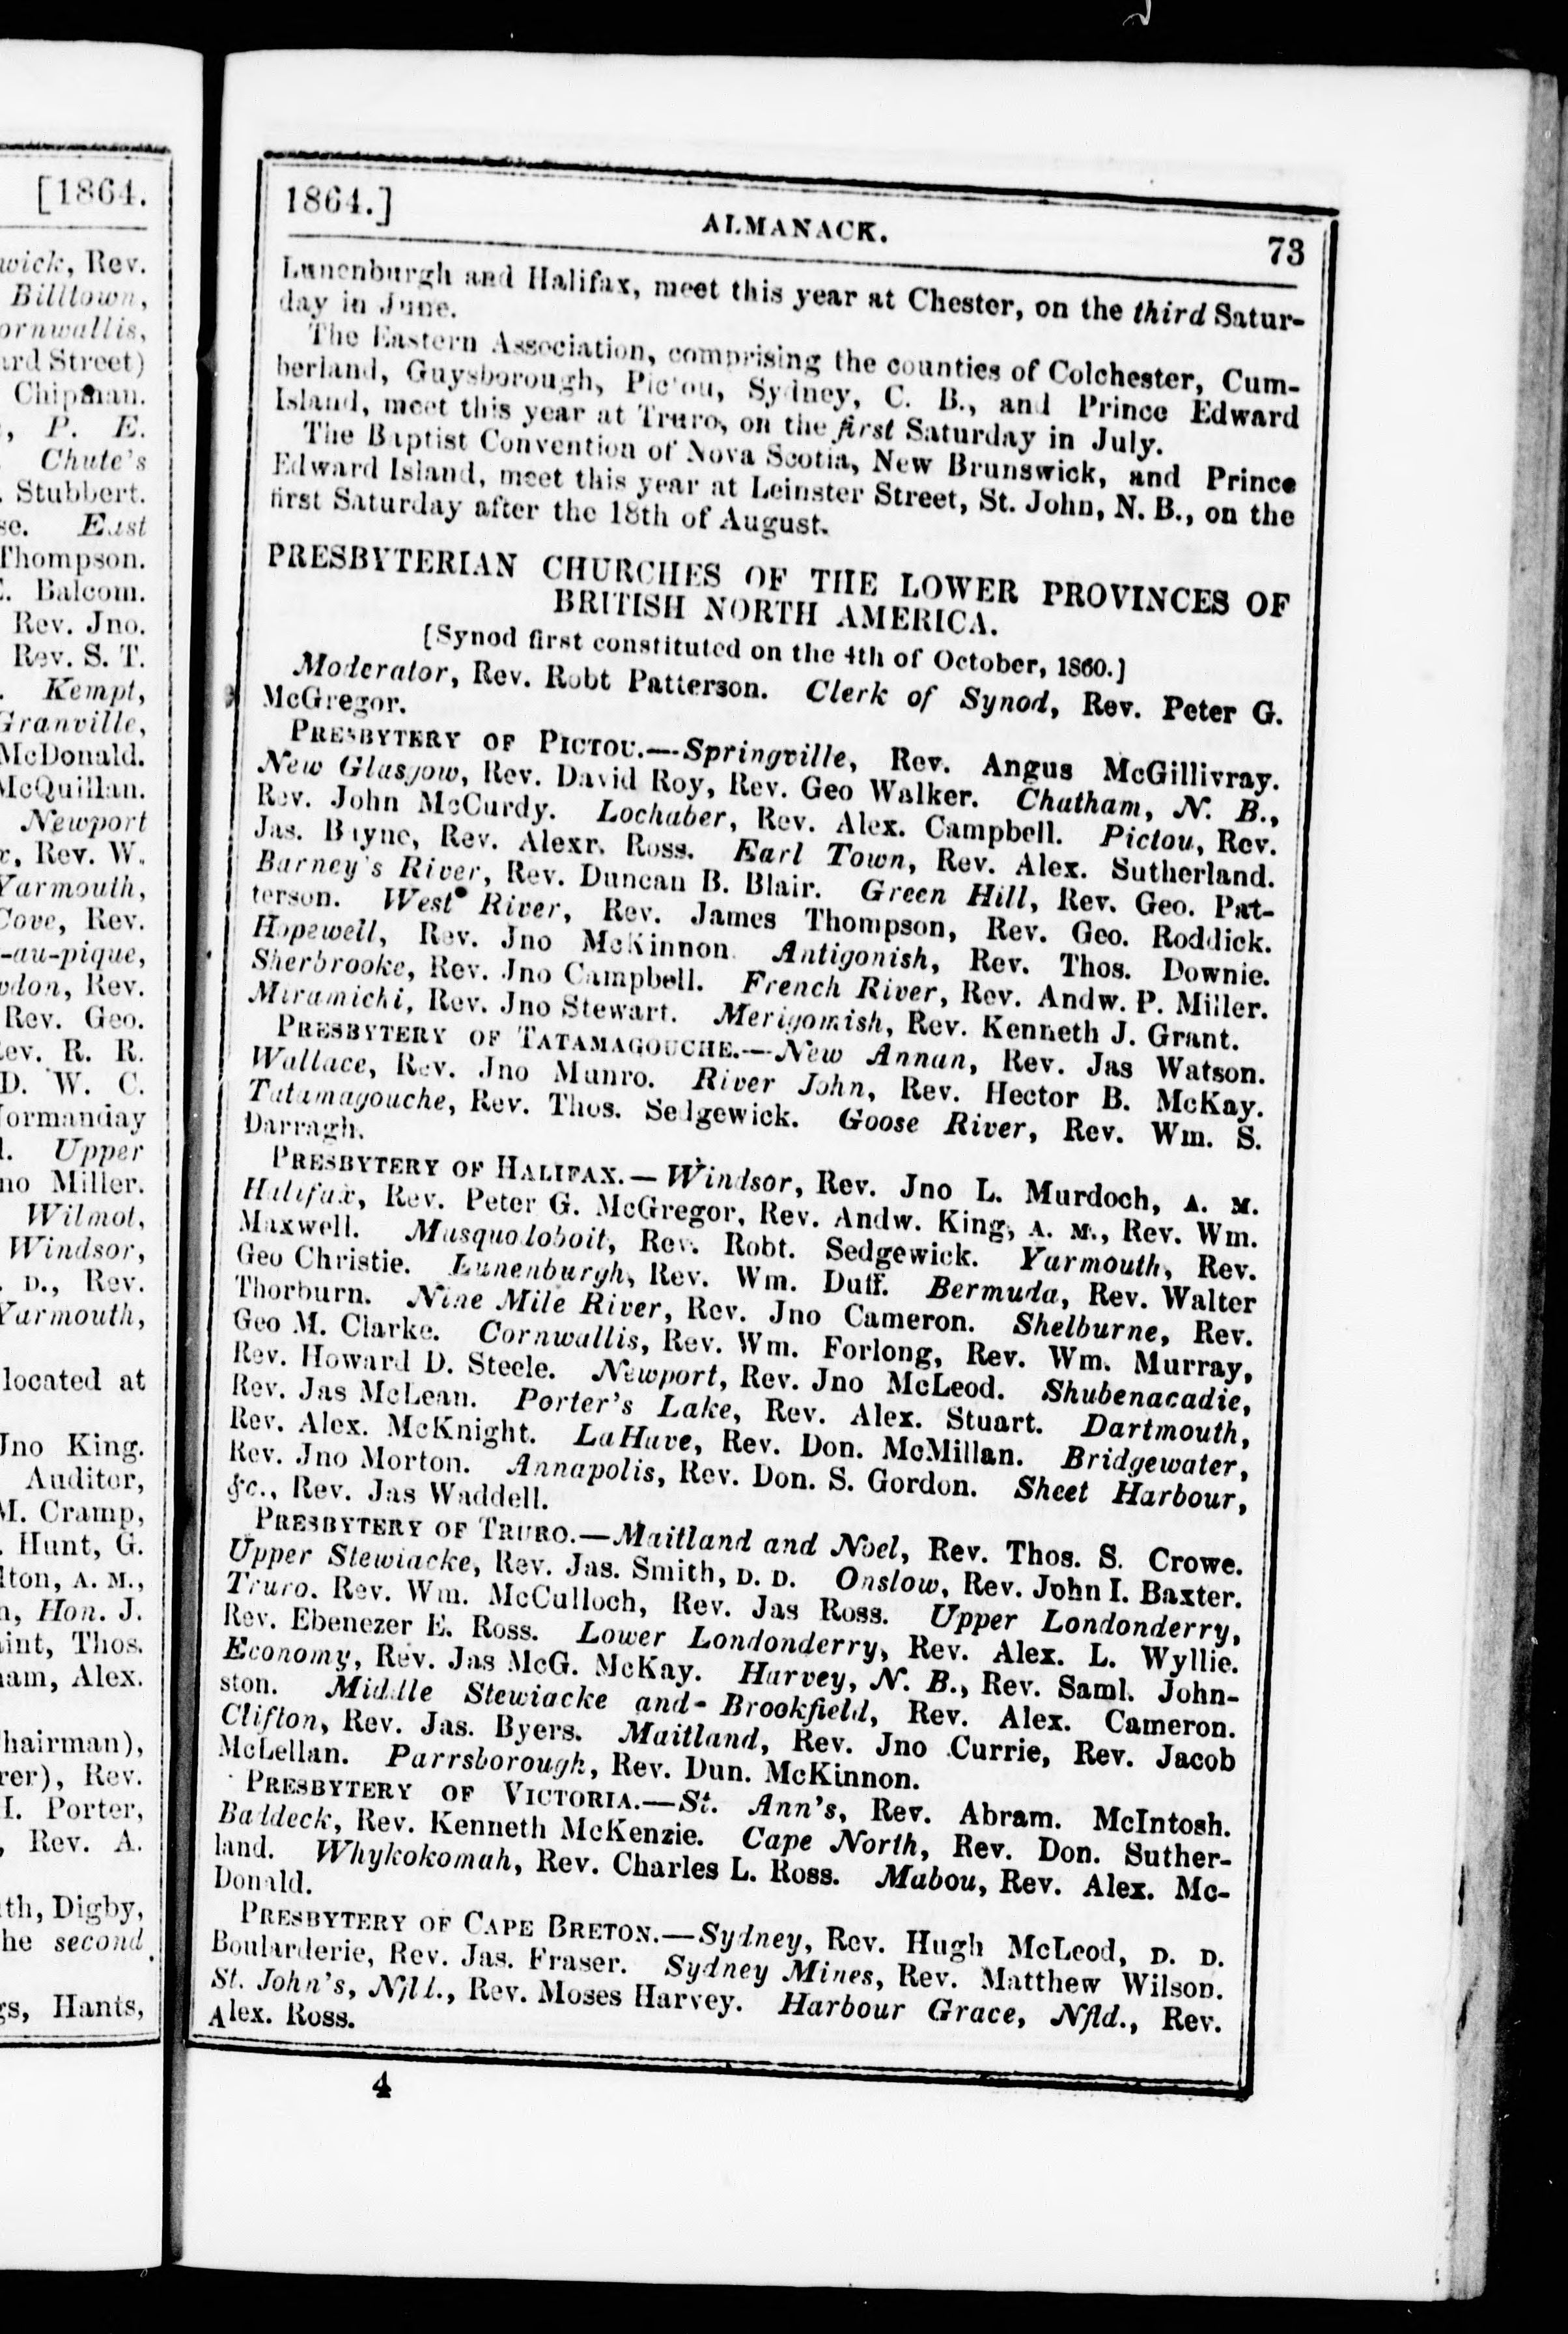 [1864.
wick, Rev.
Billtown,
ornwallis,
ard Street)
Chipman.
, P. E.
Chute's
. Stubbert.
se. East
Thompson.
. Balcom.
Rev. Jno.
Rev. S. T.
. Kempt,
Granville,
McDonald.
McQuillan.
Newport
Rev. W.
Yarmouth,
Cove, Rev.
-au-pique,
Rev.
Rev. Geo.
ev. R. R.
D. W. C.
ormanday
. Upper
no Miller.
Wilmot,
Windsor,
. D., Rev.
Yarmouth,
located at
Jno King.
Auditor,
M. Cramp,
. Hunt, G.
lton, A. M.,
n, Hon. J.
int, Thos.
am, Alex.
hairman),
rer), Rev.
I. Porter,
, Rev. A.
th, Digby,
he second
gs, Hants,
1864.] ALMANACK. 73
Lunenburgh and Halifax, meet this year at Chester, on the third Satur-
day in June.
The Eastern Association, comprising the counties of Colchester, Cum-
berland, Guysborough, Pictou, Sydney, C. B., and Prince Edward
Island, meet this year at Truro, on the first Saturday in July.
The Baptist Convention of Nova Scotia, New Brunswick, and Prince
Edward Island, meet this year at Leinster Street, St. John, N. B., on the
first Saturday after the 18th of August.
PRESBYTERIAN CHURCHES OF THE LOWER PROVINCES OF
BRITISH NORTH AMERICA.
[Synod first constituted on the 4th of October, 1860.]
Moderator, Rev. Robt Patterson. Clerk of Synod, Rev. Peter G.
McGregor.
PRESBYTERY OF PICTOU.—Springville, Rev. Angus McGillivray.
New Glasgow, Rev. David Roy, Rev. Geo Walker. Chatham, N. B.,
Rev. John McCurdy. Lochaber, Rev. Alex. Campbell. Pictou, Rev.
Jas. Bayne, Rev. Alexr. Ross. Earl Town, Rev. Alex. Sutherland.
Barney's River, Rev. Duncan B. Blair. Green Hill, Rev. Geo. Pat-
terson. West River, Rev. James Thompson, Rev. Geo. Roddick.
Hopewell, Rev. Jno McKinnon. Antigonish, Rev. Thos. Downie.
Sherbrooke, Rev. Jno Campbell. French River, Rev. Andw. P. Miller.
Miramichi, Rev. Jno Stewart. Merigomish, Rev. Kenneth J. Grant.
PRESBYTERY OF TATAMAGOUCHE.—New Annan, Rev. Jas Watson.
Wallace, Rev. Jno Munro. River John, Rev. Hector B. McKay.
Tatamagouche, Rev. Thos. Sedgewick. Goose River, Rev. Wm. S.
Darragh.
PRESBYTERY OF HALIFAX.—Windsor, Rev. Jno L. Murdoch, A. M.
Halifax, Rev. Peter G. McGregor, Rev. Andw. King, A. M., Rev. Wm.
Maxwell. Musquodoboit, Rev. Robt. Sedgewick. Yarmouth, Rev.
Geo Christie. Lunenburgh, Rev. Wm. Duff. Bermuda, Rev. Walter
Thorburn. Nine Mile River, Rev. Jno Cameron. Shelburne, Rev.
Geo M. Clarke. Cornwallis, Rev. Wm. Forlong, Rev. Wm. Murray,
Rev. Howard D. Steele. Newport, Rev. Jno McLeod. Shubenacadie,
Rev. Jas McLean. Porter's Lake, Rev. Alex. Stuart. Dartmouth,
Rev. Alex. McKnight. LaHave, Rev. Don. McMillan. Bridgewater,
Rev. Jno Morton. Annapolis, Rev. Don. S. Gordon. Sheet Harbour,
&c., Rev. Jas Waddell.
PRESBYTERY OF TRURO.—Maitland and Noel, Rev. Thos. S. Crowe.
Upper Stewiacke, Rev. Jas. Smith, D. D. Onslow, Rev. John I. Baxter.
Truro. Rev. Wm. McCulloch, Rev. Jas Ross. Upper Londonderry,
Rev. Ebenezer E. Ross. Lower Londonderry, Rev. Alex. L. Wyllie.
Economy, Rev. Jas McG. McKay. Harvey, N. B., Rev. Saml. John-
ston. Middle Stewiacke and Brookfield, Rev. Alex. Cameron.
Clifton, Rev. Jas. Byers. Maitland, Rev. Jno Currie, Rev. Jacob
McLellan. Parrsborough, Rev. Dun. McKinnon.
PRESBYTERY OF VICTORIA.—St. Ann's, Rev. Abram. McIntosh.
Baddeck, Rev. Kenneth McKenzie. Cape North, Rev. Don. Suther-
land. Whykokomah, Rev. Charles L. Ross. Mabou, Rev. Alex. Mc-
Donald.
PRESBYTERY OF CAPE BRETON.—Sydney, Rev. Hugh McLeod, D. D.
Boularderie, Rev. Jas. Fraser. Sydney Mines, Rev. Matthew Wilson.
St. John's, Nfld., Rev. Moses Harvey. Harbour Grace, Nfld., Rev.
Alex. Ross.
4